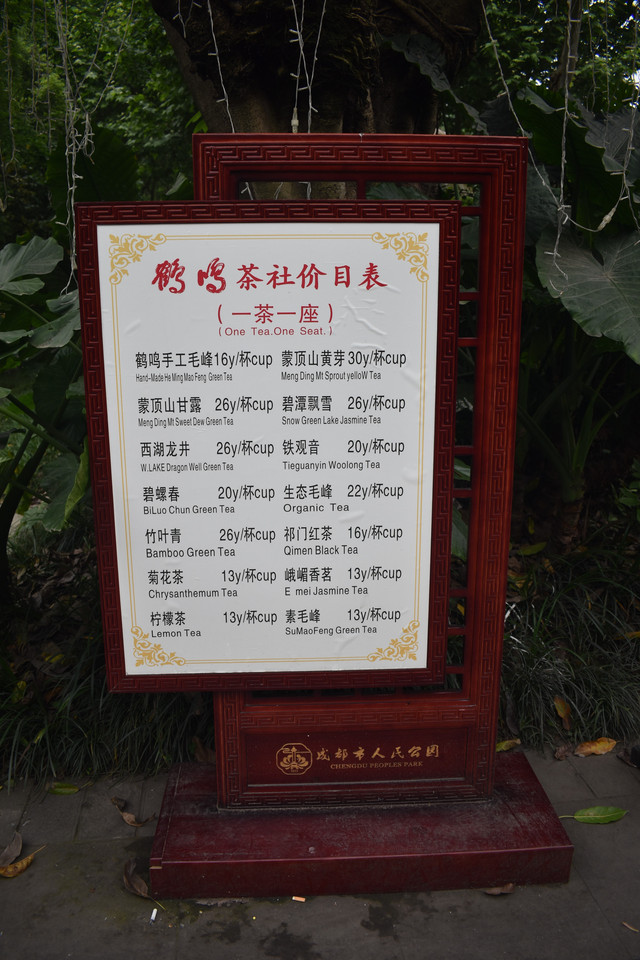 鹤鸣茶社价目表
(一茶一座)
(One Tea.One Seat.)
鹤鸣手工毛峰16y/杯cup 蒙顶山黄芽30y/杯cup
Hand-Made He Ming Mao Feng Green Tea Meng Ding Mt Sprout yelloW Tea
蒙顶山甘露 26y/杯cup 碧潭飘雪 26y/杯cup
Meng Ding Mt Sweet Dew Green Tea Snow Green Lake Jasmine Tea
西湖龙井 26y/杯cup 铁观音 20y/杯cup
W.LAKE Dragon Well Green Tea Tieguanyin Woolong Tea
碧螺春 20y/杯cup 生态毛峰 22y/杯cup
BiLuo Chun Green Tea Organic Tea
竹叶青 26y/杯cup 祁门红茶 16y/杯cup
Bamboo Green Tea Qimen Black Tea
菊花茶 13y/杯cup 峨嵋香茗 13y/杯cup
Chrysanthemum Tea E mei Jasmine Tea
柠檬茶 13y/杯cup 素毛峰 13y/杯cup
Lemon Tea SuMaoFeng Green Tea
成都市人民公园
CHENGDU PEOPLES PARK